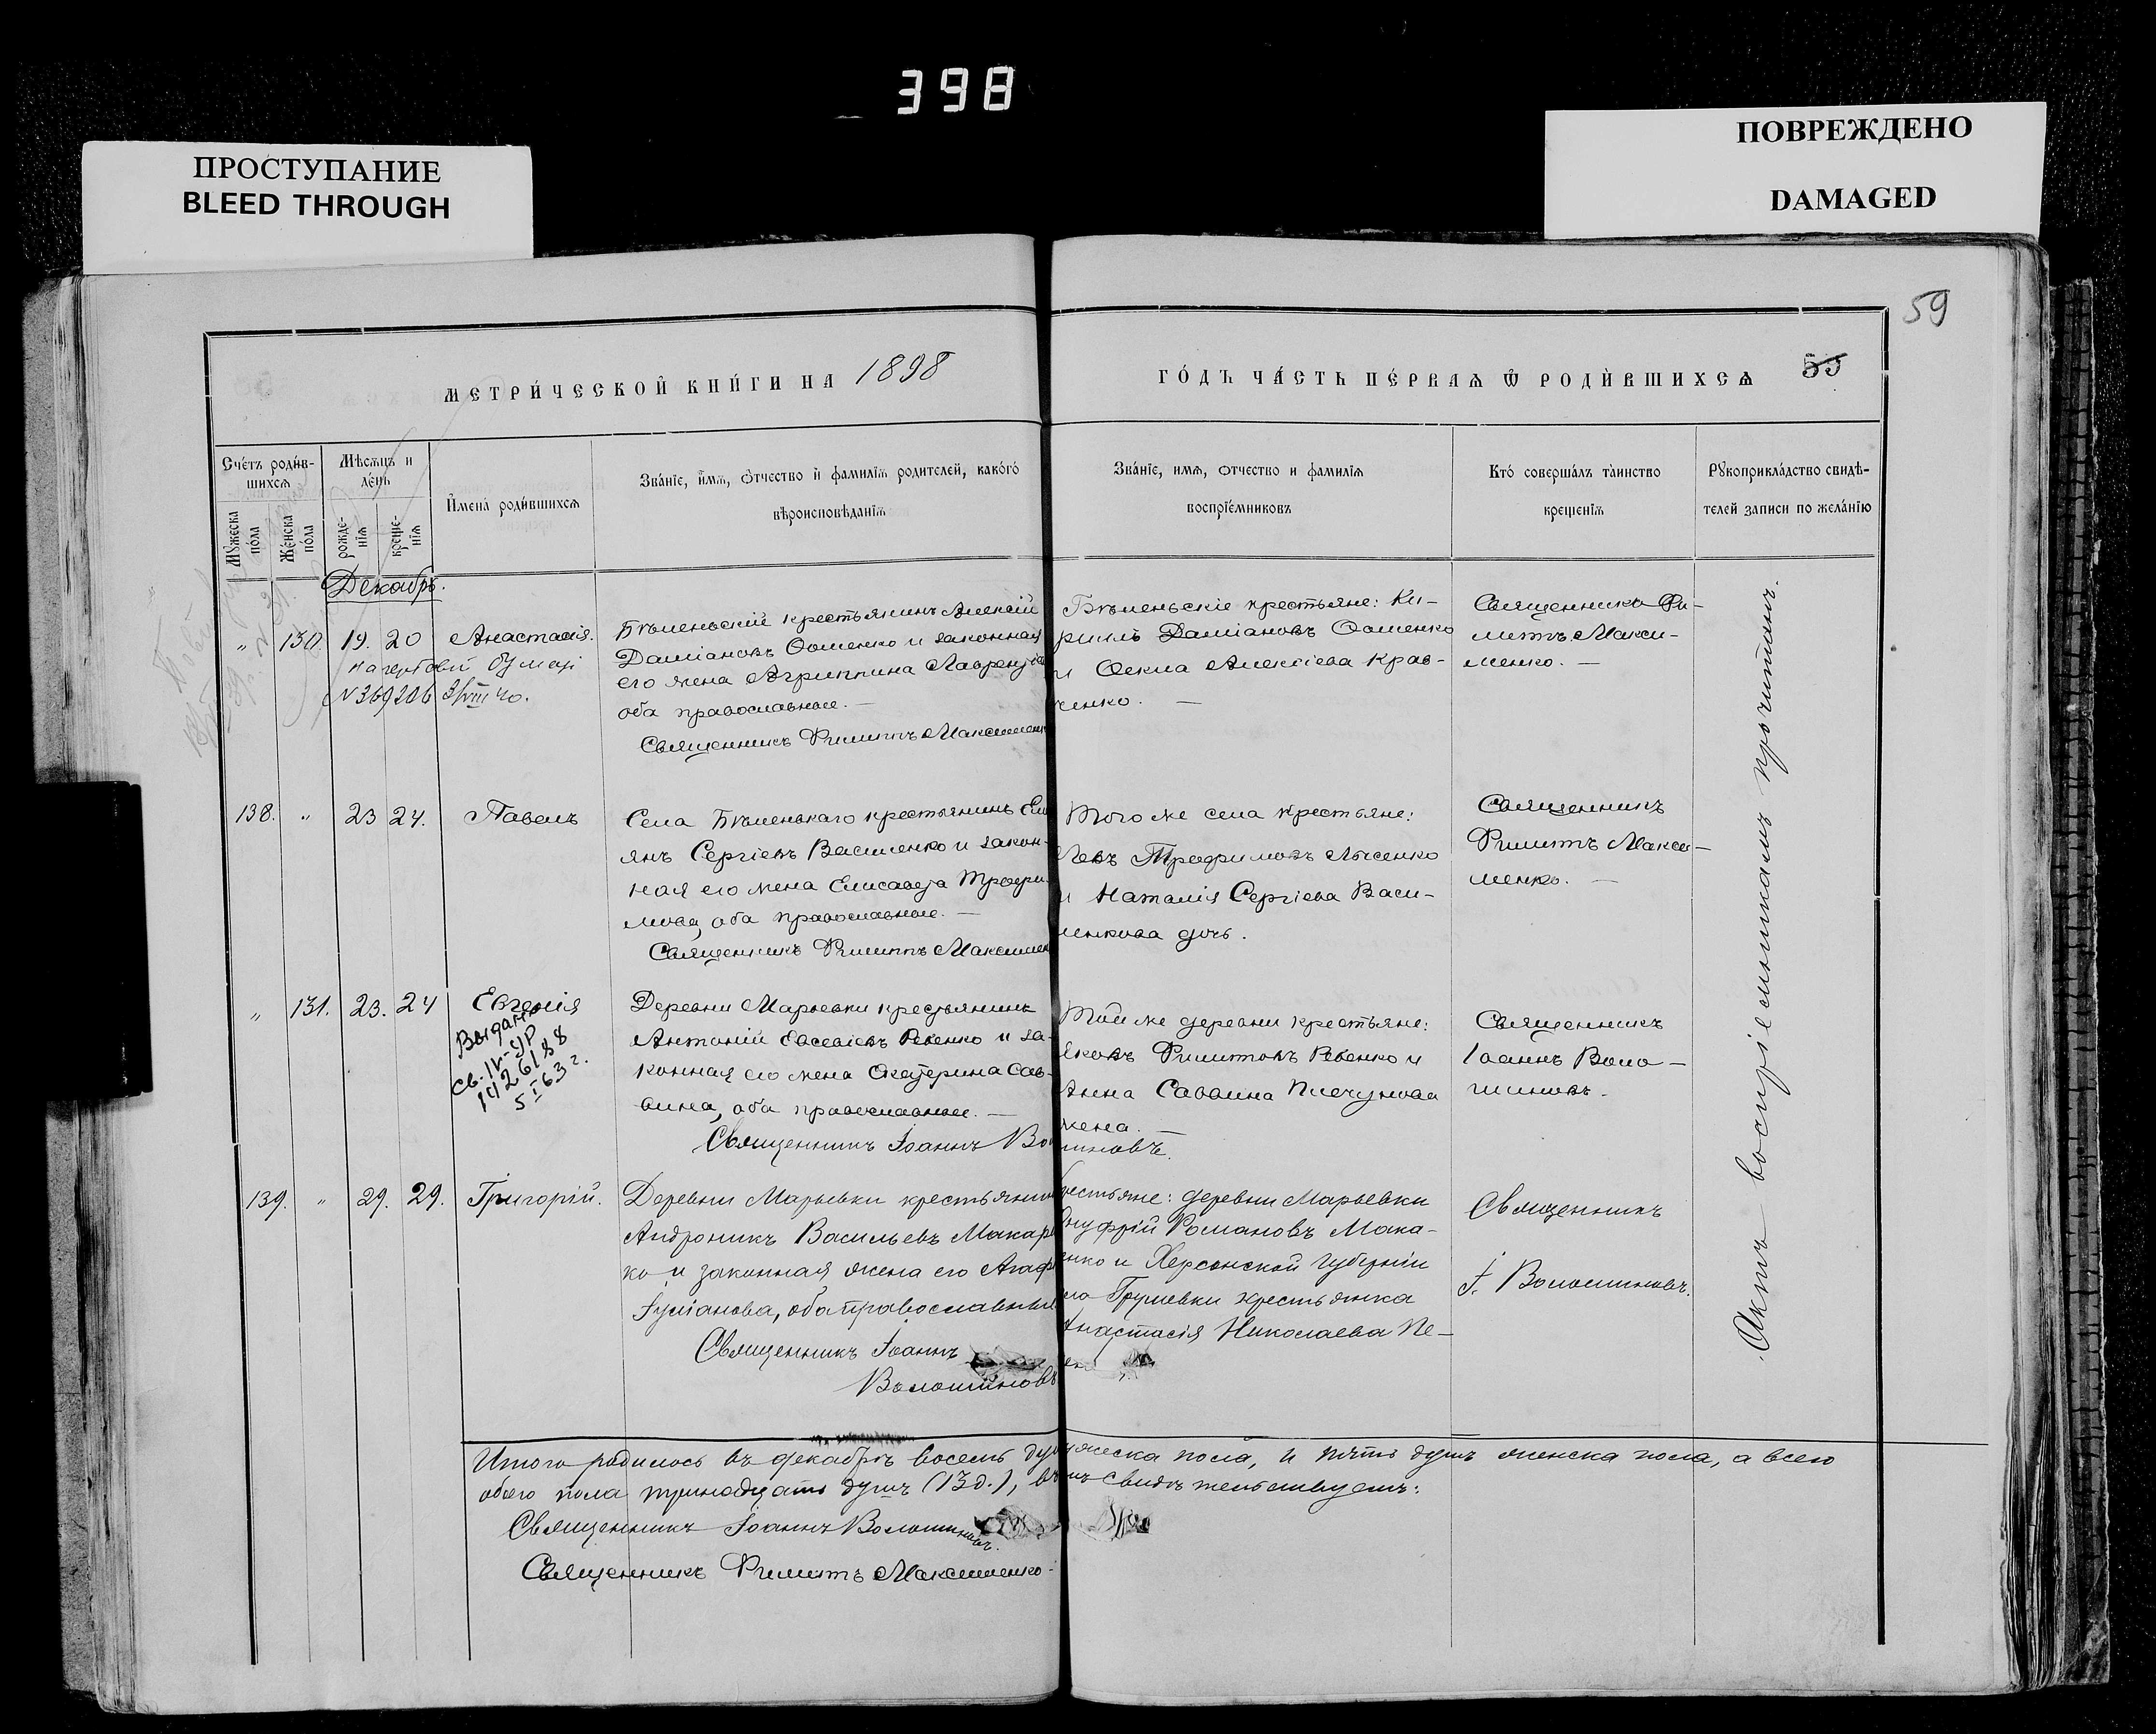 398
ПРОСТУПАНИЕ
BLEED THROUGH
ПОВРЕЖДЕНО
DAMAGED
59
МЕТРИ́ЧЕСКОЙ КНИ́ГИ НА 1898
ГО́ДЪ ЧА́СТЬ ПЕ́РВАѦ Ѿ РОДИ́ВШИХСѦ 55
Сче́тъ роди́в-
шихсѧ
Мѣсѧцъ и
де́нь
Мꙋжеска
по́ла
Же́нска
по́ла
рожде-
нїѧ
креще-
нїѧ
И҆мена̀ роди́вшихсѧ
Зва́нїе, и҆́мѧ, ѻ҆́тчество и҆ фамилїѧ родителей, како́гѡ
вѣроисповѣданїѧ
Зва́нїе, имѧ, ѻтчество и фамилїѧ
воспрїе́мниковъ
Кто̀ соверша́лъ та̀инство
крещенїѧ
Рꙋкоприкла́дство свидѣ-
телей записи по жела́нїю
Декабрь.
„ 130 19. 20 Анастасія.
№ 369206
Бѣленьскій крестьянинъ Алексій
Даміановъ Ѳоменко и законная
его жена Агриппина Лаврентіева
оба православные. —
Священникъ Филиппъ Максименко
Бѣленьскіе крестьяне: Ки-
риллъ Даміановъ Ѳоменко
и Ѳекла Алексіева Крав-
ченко. —
Священникъ Фи-
липпъ Макси-
менко. —
138. „ 23 24. Павелъ
Села Бѣленькаго крестьянинъ
янъ Сергіевъ Василенко и закон-
ная его жена Елисавета Трофи-
мова, оба православные. —
Священникъ Филиппъ Максимен
Того же села крестьяне:
Левъ Трофимовъ Лысенко
и Наталія Сергіева Васи-
ленкова дочь.
Священникъ
Филиппъ Макси-
менко. —
„ 131. 23. 24 Евгенія
Выдано
св. IV-ЯР
126188
5 I 63 г.
Деревни Марьевки крестьянинъ
Антоній Евсевіевъ Ревенко и за-
конная его жена Екатерина Сав-
вина, оба православные. —
Священникъ Іоаннъ Волошиновъ.
Той же деревни крестьяне:
Яковъ Филипповъ Ревенко и
Анна Саввина Плечунова
жена.
Священникъ
Іоаннъ Воло-
шиновъ.
139. „ 29. 29. Григорій.
Деревни Марьевки крестьянин
Андроникъ Васильевъ Макаре
ко и законная жена его Агаф
Іуліанова, оба православные
Священникъ Іоаннъ
Волошиновъ
крестьяне: деревни Марьевки
Онуфрій Романовъ Мака-
енко и Херсонской губерніи
села Грушевки крестьянка
Анастасія Николаева Пе-
Священникъ
І. Волошиновъ.
Актъ воспріемникамъ прочитанъ.
Итого родилось въ декабрѣ восемь душъ мужеска пола, и пять душъ женска пола, а всего
обоего пола тринадцать душъ (13 д.), въ чемъ свидѣтельствуемъ:
Священникъ Іоаннъ Волошиновъ.
Священникъ Филиппъ Максименко.